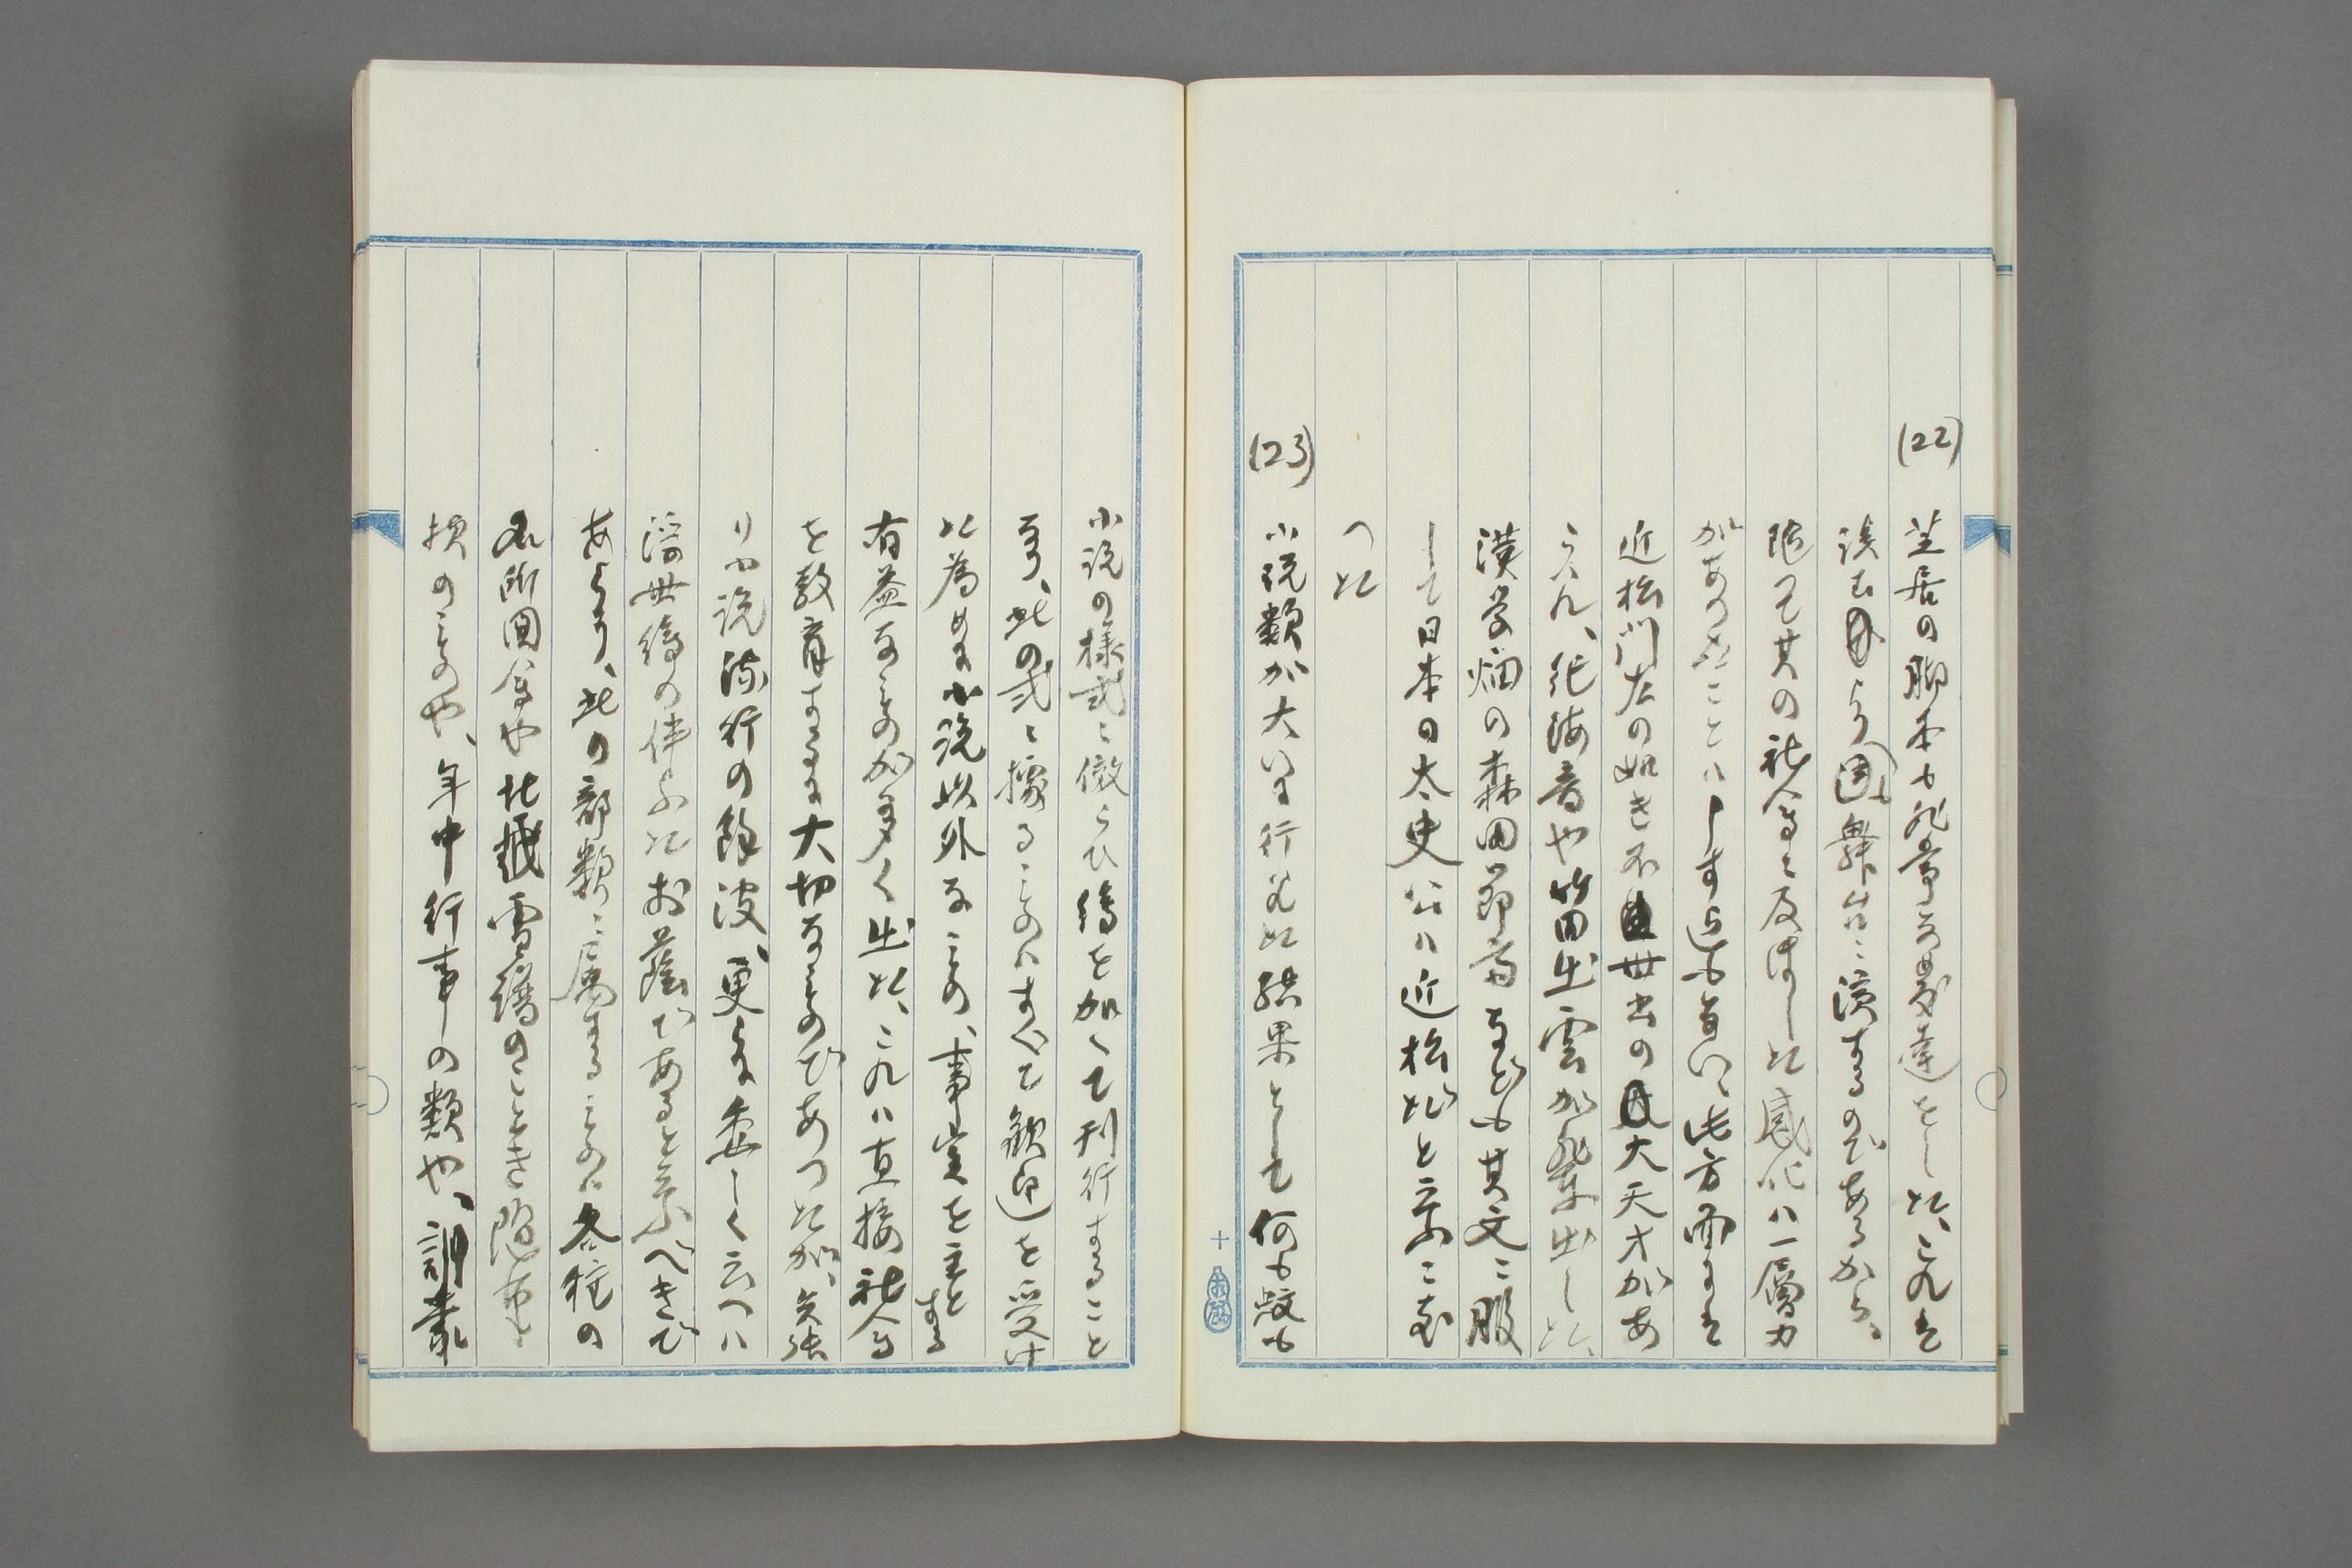 (22) 芝居の脚本も非常な発達をした、これは
読むのより図舞台に演するのであるから、
随つて其の社会に及ぼした感化は一層力
があつたことハ申す迄も無い、此方面には
近松門左の如き不世出の大天才があ
らハれ、紀海音や竹田出雲が輩出した、
漢学畑の森田節斎なども其文に服
して日本の太史公ハ近松だと云ふに至
つた
(23) 小説類が大いに行はれた結果として何も蚊も
小説の様式に倣らひ絵を加へて刊行すること
なり、此の式に據るものはすべて歓迎を受け
た為めに小説以外なもの、事実を主とする
有益なものが多く出た、これハ直接社会
を教育するに大切なものであつたが、矢張
り小説流行の餘波、更に委しく云へハ
浮世絵の伴ふたお蔭であると云ふべきで
あらう、此の部類に属するものは各種の
名所図会や北越雪譜のごとき
類のものや、年中行事の類や、訓蒙